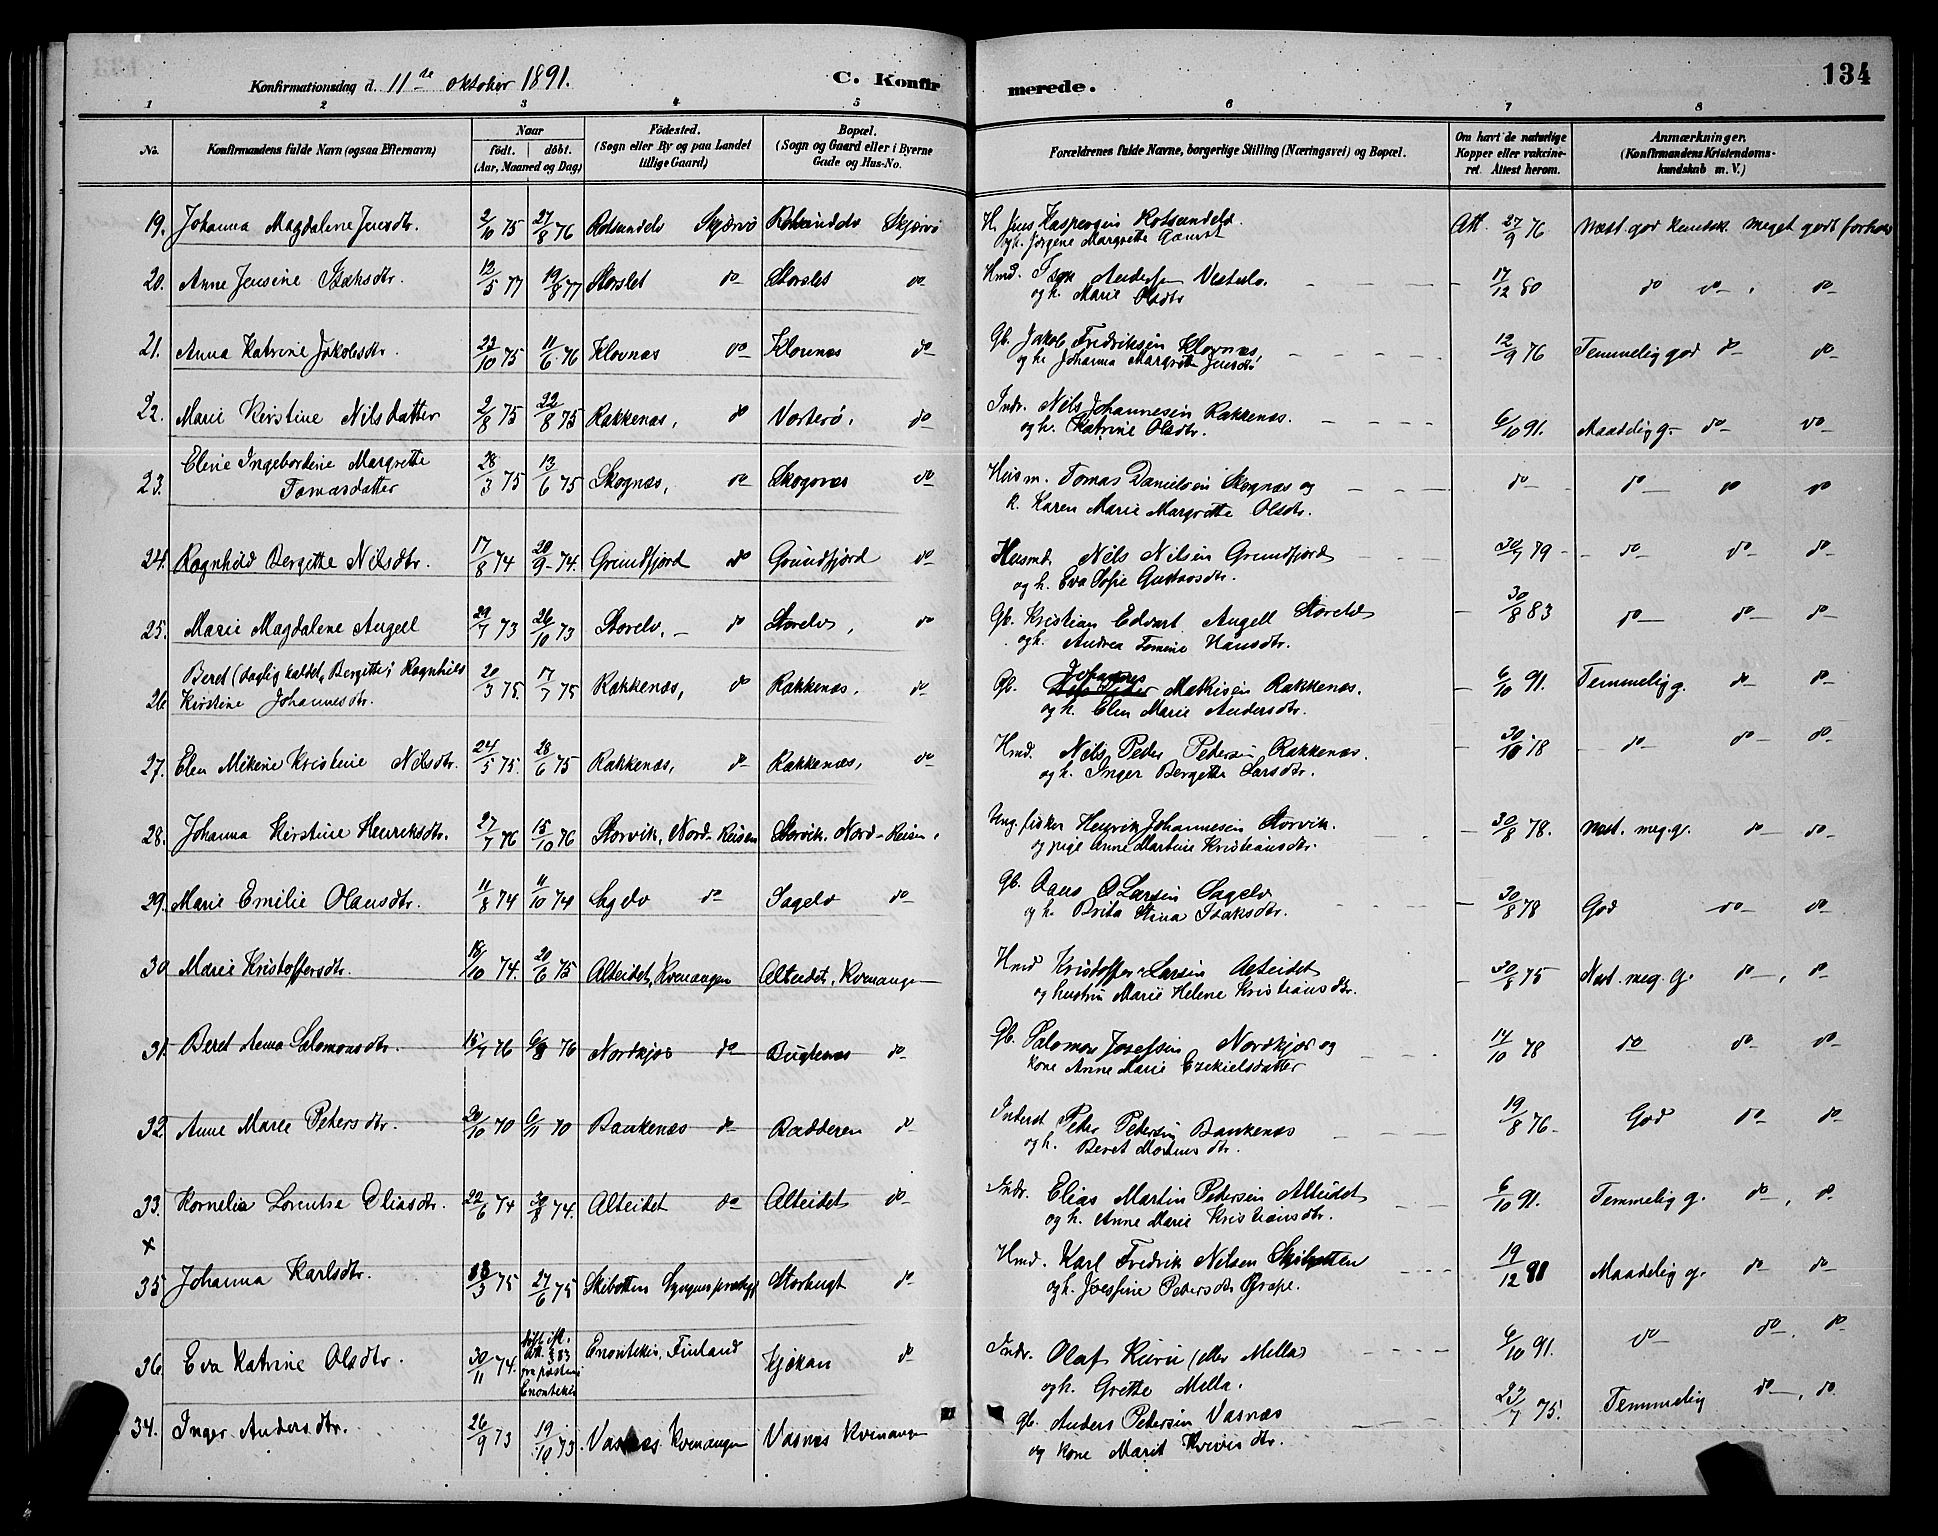 Konfirmationsdag d. 11te oktober 1891.
C. Konfirmerede.
134
1 2 3 4 5 6 7 8
No. Konfirmandens fulde Navn (ogsaa Efternavn) Naar født. døbt. (Aar, Maaned og Dag) Fødested. (Sogn eller By og paa Landet tillige Gaard) Bopæl. (Sogn og Gaard eller i Byerne Gade og Hus-No. Forældrenes fulde Navne, borgerlige Stilling (Næringsvei) og Bopæl. Om havt de naturlige Kopper eller vakcineret. Attest herom. Anmærkninger. (Konfirmandens Kristendomskundskab m. V.)
19. Johanna Magdalene Jensdtr. 2/10 75 27/8 76 Rotsundelv Skjærvø Rotsundelv Skjærvø H. Jens Kaspersen Rotsundelv. Att. 27/9 76 Næst. god kundsk. meget godt forhold
og h. Jørgine Margrethe
20. Anne Jensine Isaksdtr. 12/5 77 19/8 77 Storslet do Storslet do Hmd. Isak Andersen 17/12 80 do do do
og h. Marie Olsdtr
21. Anna Katrine Jakobsdtr. 22/10 75 11/6 76 Klovnæs do Klovnæs do Gb. Jakob Fredriksen Klovnæs 12/9 76 Temmelig god do do
og h. Johanna Margrethe Jensdtr
22. Marie Kirstine Nilsdatter 2/8 75 22/8 75 Rakkenæs, do Vorterø. do Indr. Nils Johannesen Rakkenæs. 6/10 91. Maadelig g. do do
og h. Katrine Olsdtr.
23. Eline Ingebordine Margrette Tomasdatter 28/3 75 13/6 75 Skognæs, do Skognæs do Husm. Tomas Danielsen Skognæs og do do do do
k. Karen Marie Margrette Olsdtr.
24. Ragnhild Bergitte Nilsdtr. 17/8 74 20/9 74. Grundfjord do Grundfjord do Husmd. Nils Nilsen Grundfjord 30/7 79 do do do
og h. Eva Sofie Gustavsdtr.
25. Marie Magdalene Angell 29/7 73 26/10 73 Storelv. do Storelv, do Gb. Kristian Edvart Angell Storelv 30/8 83 do do do
og h. Andrea Tomine Hansdtr.
26. Beret (daglig kaldet Bergitte) Ragnhild Kirstine Johannesdtr. 20/3 75. 17/7 75 Rakkenæs, do Rakkenæs. do Gb. Johannes Mathisen Rakkenæs. 6/10 91. Temmelig g. do do
og h. Elen Marie Andersdtr.
27. Elen Mikine Kristine Nilsdtr. 24/5 75. 28/6 75 Rakkenæs, do Rakkenæs, do Hmd. Nils Peder Pedersen Rakkenæs. 30/10 78 do do do
og h. Inger Bergitte Larsdtr.
28. Johanna Kirstine Henriksdtr. 27/7 76 15/10 76 Storvik, Nord-Reisen Storvik. Nord-Reisen. Ung. fisker Henrik Johannesen Storvik. 30/8 78. Næst. meg. g. do do
og pige Anne Martine Kristiansdtr.
29. Marie Emilie Olausdtr. 11/8 74 11/10 74 Sagelv do Sagelv do Gb. O Larsen Sagelv 30/8 78 God do do
og h. Brita Stina Isaksdtr.
30 Marie Kristoffersdtr. 18/10 74. 20/6 75 Alteidet, Kvenangen Alteidet, Kvenangen Hmd Kristoffer Larsen Alteidet 30/8 75 Næst. meg. g. do, do
og hustru Marie Helene Kristiansdtr.
31. Beret Anna Salomonsdtr. 15/7 76 6/8 76 Nordkjos do Bugtenæs do Gb. Salomon Josefsen Nordkjos og 14/10 78 do do do
kone Anne Marie Ezekielsdatter
32. Anne Marie Petersdtr. 20/10 70 6/11 70 Baukenæs do Badderen do Inderst Peter Petersen Baukenæs 19/8 76 God do do
og h. Beret Mortensdtr.
33. Kornelia Lorentse Eliasdtr. 22/6 74 30/8 74. Alteidet do Alteidet do Indr. Elias Martin Pedersen Alteidet 6/10 91. Temmelig g. do, do
og h. Anne Marie Kristiansdtr.
x
35 Johanna Karlsdtr. 18/3 75 27/6 75 Skibotten Lyngens prestegj Storbugt do Hmd. Karl Fredrik Nilsen Skibotten 19/12 81 Maadelig g. do do
og h. Josefine Petersdtr
36. Eva Katrine Olsdtr. 30/11 74. Enontekis, Finland Kjøkan do Indr. Olaf Kuru (eller Mella) 6/10 91. do do do
og h. Grette Mella.
34. Inger Andersdtr. 26/9 73 19/10 73 Vasnæs Kvenangen Vasnæs Kvenangen Gb. Anders Petersen Vasnæs 23/7 75. Temmelig do, do
og kone Marit